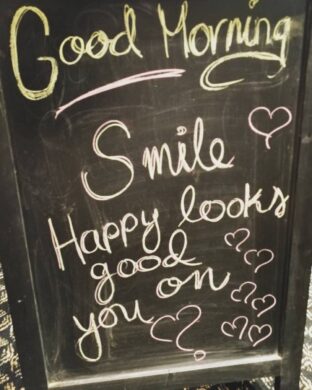 Good Morning
Smile
Happy looks
good
you on